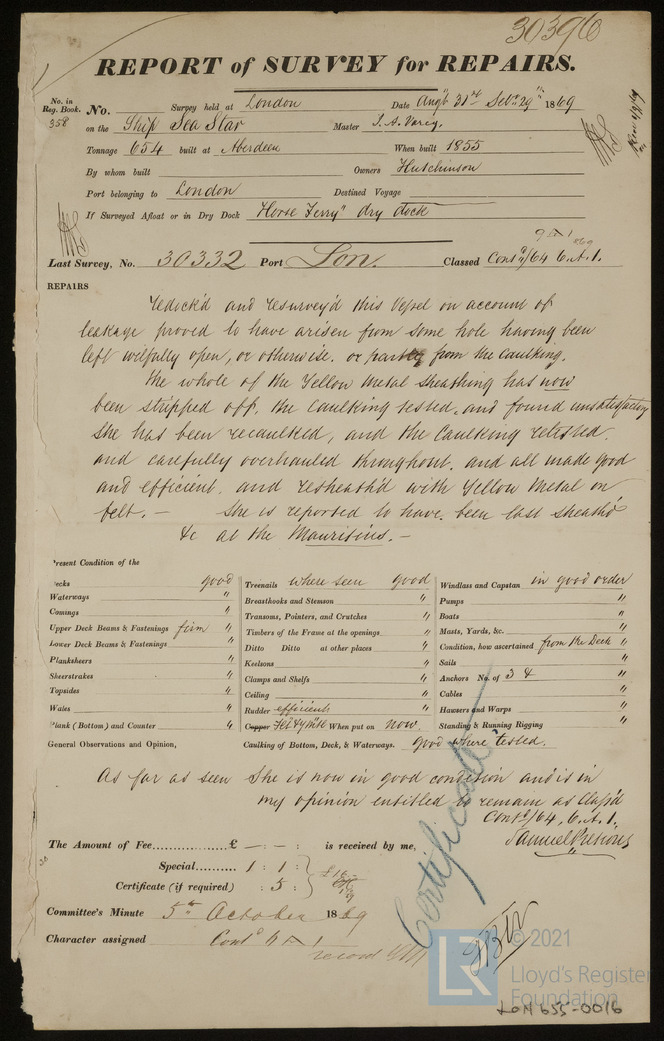 30396
REPORT of SURVEY for REPAIRS.
No. in Reg. Book. No. Survey held at London Date Augt 31st Septr 29th 1869
358 on the Ship Sea Star Master J. A. Varey
Tonnage 654 built at Aberdeen When built 1855
By whom built Owners Hutchinson
Port belonging to London Destined Voyage
If Surveyed Afloat or in Dry Dock "Horse Ferry" dry dock
Last Survey, No. 30332 Port Lon. Classed Contd/64 6.A.1.
REPAIRS
Redock'd and resurvey'd this Vessel on account of
leakage proved to have arisen from some hole having been
left wilfully open, or otherwise. or partly from the Caulking.
The whole of the Yellow Metal sheathing has now
been stripped off. the Caulking tested, and found unsatisfactory
She has been recaulked, and the Caulking retested.
and carefully overhauled throughout. and all made good
and efficient, and resheath'd with Yellow Metal on
felt. — She is reported to have been last sheath'd
&c at the Mauritius. —
Present Condition of the
Decks good Treenails where seen good Windlass and Capstan in good order
Waterways " Breasthooks and Stemson " Pumps "
Comings " Transoms, Pointers, and Crutches " Boats "
Upper Deck Beams & Fastenings firm " Timbers of the Frame at the openings " Masts, Yards, &c. "
Lower Deck Beams & Fastenings " Ditto Ditto at other places " Condition, how ascertained from the Deck "
Planksheers " Keelsons " Sails "
Sheerstrakes " Clamps and Shelfs " Anchors No. of 3 & "
Topsides " Ceiling " Cables "
Wales " Rudder efficient Hawsers and Warps "
Plank (Bottom) and Counter " Copper Felt & Y Metl When put on now. Standing & Running Rigging "
General Observations and Opinion, Caulking of Bottom, Deck, & Waterways. good where tested.
As far as seen She is now in good condition and is in
my opinion entitled to remain as Class'd
Contd/64. 6.A.1.
Samuel Pretious
The Amount of Fee £ — — : is received by me,
Special 1 : 1 :
Certificate (if required) : 5 :
Certificate
Committee's Minute 5th October 1869
Character assigned Contd 6 A 1
record YM
© 2021
LR Lloyd's Register
Foundation
LON 655-0016